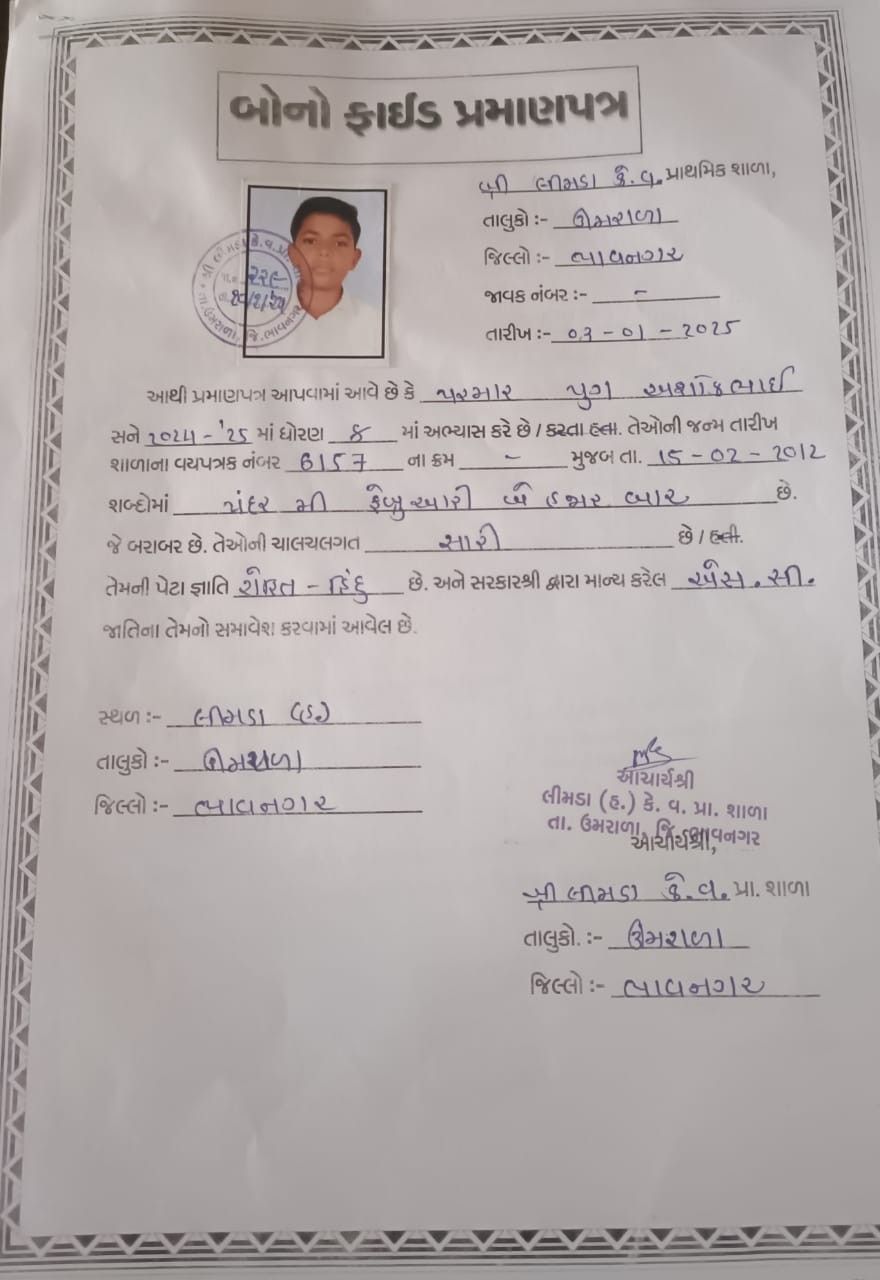 બોનો ફાઈડ પ્રમાણપત્ર
શ્રી લીમડા કે.વ. પ્રાથમિક શાળા,
તાલુકો :- ઉમરાળા
જિલ્લો :- ભાવનગર
જાવક નંબર :- -
તારીખ :- 03-01-2025
આથી પ્રમાણપત્ર આપવામાં આવે છે કે પરમાર યુગ અશોકભાઈ
સને ૨૦૨૪-'૨૫ માં ધોરણ ૮ માં અભ્યાસ કરે છે / કરતા હતા. તેઓની જન્મ તારીખ
શાળાના વયપત્રક નંબર 6157 ના ક્રમ - મુજબ તા. 15-02-2012
શબ્દોમાં પંદર મી ફેબ્રુઆરી બે હજાર બાર છે.
જે બરાબર છે. તેઓની ચાલચલગત સારી છે / હતી.
તેમની પેટા જ્ઞાતિ રોહિત - હિંદુ છે. અને સરકારશ્રી દ્વારા માન્ય કરેલ એસ.સી.
જાતિના તેમનો સમાવેશ કરવામાં આવેલ છે.
સ્થળ :- લીમડા (હ.)
તાલુકો :- ઉમરાળા
જિલ્લો :- ભાવનગર
આચાર્યશ્રી
લીમડા (હ.) કે. વ. પ્રા. શાળા
તા. ઉમરાળા, જિ. ભાવનગર
આચાર્યશ્રી,
શ્રી લીમડા કે.વ. પ્રા. શાળા
તાલુકો. :- ઉમરાળા
જિલ્લો :- ભાવનગર